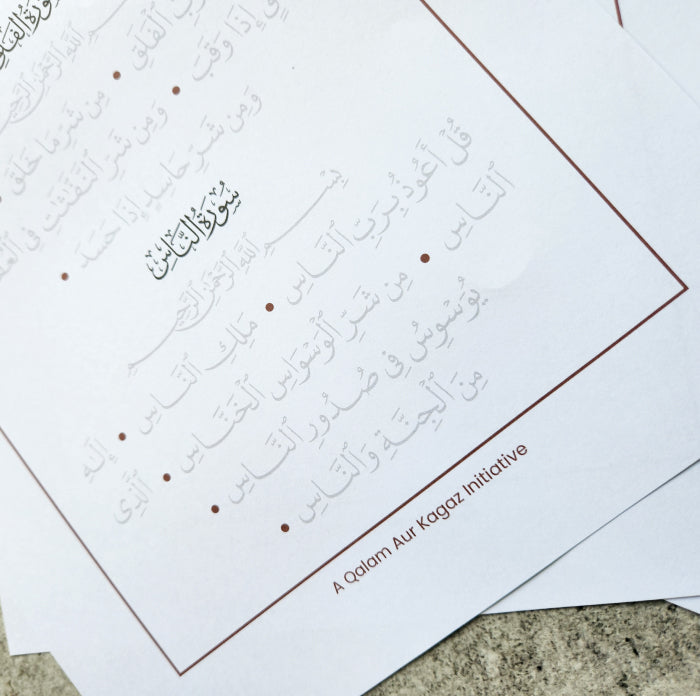 سُورَةُ الْفَلَقِ
ٱللَّهِ ٱلرَّحْمَٰنِ ٱلرَّحِيمِ
بِرَبِّ ٱلْفَلَقِ • مِن شَرِّ مَا خَلَقَ •
إِذَا وَقَبَ • وَمِن شَرِّ ٱلنَّفَّٰثَٰتِ فِى
وَمِن شَرِّ حَاسِدٍ إِذَا حَسَدَ •
سُورَةُ النَّاسِ
بِسْمِ ٱللَّهِ ٱلرَّحْمَٰنِ ٱلرَّحِيمِ
قُلْ أَعُوذُ بِرَبِّ ٱلنَّاسِ • مَلِكِ ٱلنَّاسِ • إِلَٰهِ
ٱلنَّاسِ • مِن شَرِّ ٱلْوَسْوَاسِ ٱلْخَنَّاسِ • ٱلَّذِى
يُوَسْوِسُ فِى صُدُورِ ٱلنَّاسِ •
مِنَ ٱلْجِنَّةِ وَٱلنَّاسِ •
A Qalam Aur Kagaz Initiative